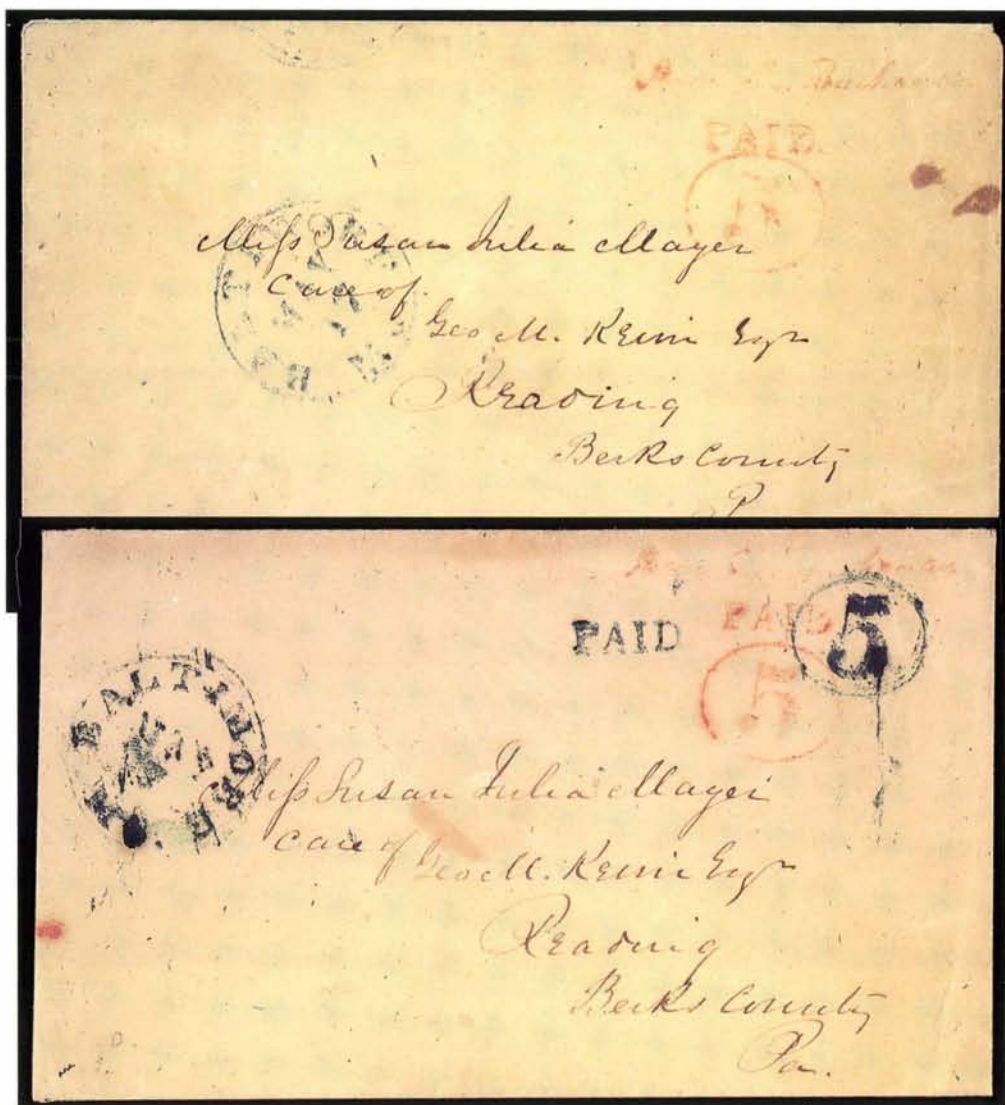 PAID
5
Miss Susan Julia Mayer
Care of
Geo M. Keim Esqr
Reading
Berks County
P
PAID
PAID
5
5
BALTIMORE
Miss Susan Julia Mayer
Care of
Geo M. Keim Esqr
Reading
Berks County
Pa.